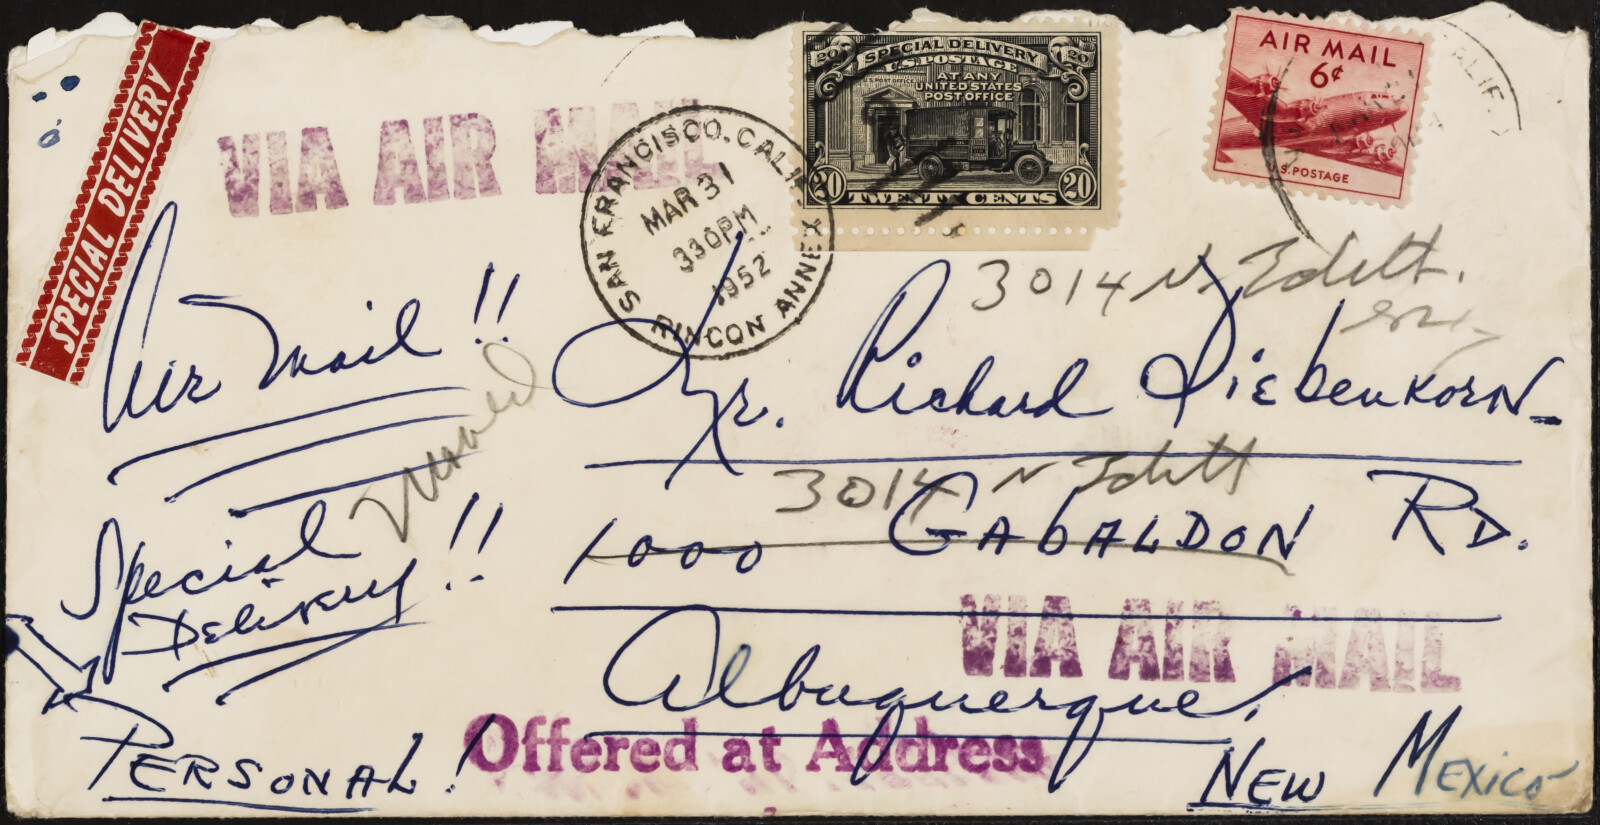 SPECIAL DELIVERY
VIA AIR MAIL
SAN FRANCISCO, CALIF.
MAR 31
330 PM
1952
RINCON ANNEX
20 SPECIAL DELIVERY 20
U.S. POSTAGE
U.S. POST OFFICE
AT ANY
UNITED STATES
POST OFFICE
20 TWENTY CENTS 20
AIR MAIL
6¢
U.S. POSTAGE
CALIF.
3014 N. Edith.
Air Mail!!
Mr. Richard Diebenkorn
Moved
3014 N Edith
1000 GABALDON RD.
Special
Delivery!!
VIA AIR MAIL
Albuquerque,
PERSONAL!
Offered at Address
NEW MEXICO